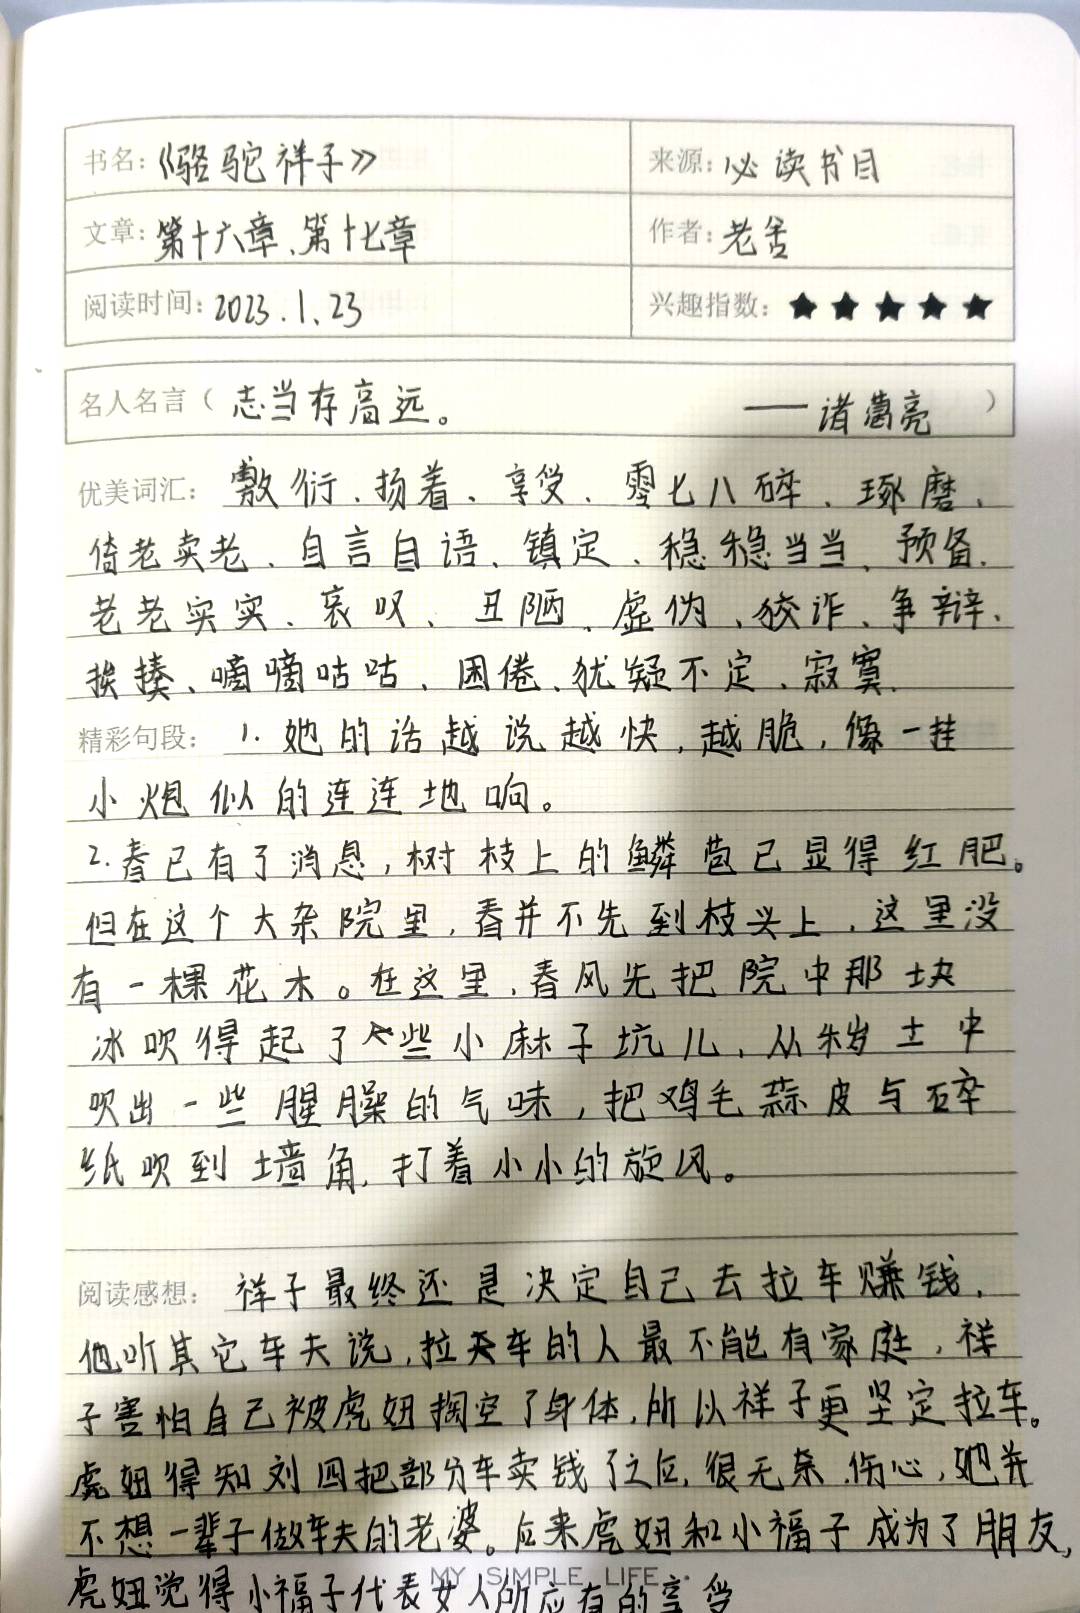 书名：《骆驼祥子》 来源：必读书目
文章：第十六章、第十七章 作者：老舍
阅读时间：2023.1.23 兴趣指数：★★★★★
名人名言（志当存高远。 ——诸葛亮）
优美词汇：敷衍、扬着、享受、零七八碎、琢磨、
倚老卖老、自言自语、镇定、稳稳当当、预备、
老老实实、哀叹、丑陋、虚伪、狡诈、争辩、
挨揍、嘀嘀咕咕、困倦、犹疑不定、寂寞、
精彩句段：1.她的话越说越快，越脆，像一挂
小炮似的连连地响。
2.春已有了消息，树枝上的鳞苞已显得红肥。
但在这个大杂院里，春并不先到枝头上，这里没
有一棵花木。在这里，春风先把院中那块
冰吹得起了些小麻子坑儿，从秽土中
吹出一些腥臊的气味，把鸡毛蒜皮与碎
纸吹到墙角，打着小小的旋风。
阅读感想：祥子最终还是决定自己去拉车赚钱，
他听其它车夫说，拉车的人最不能有家庭，祥
子害怕自己被虎妞掏空了身体，所以祥子更坚定拉车。
虎妞得知刘四把部分车卖钱了之后，很无奈，伤心，她并
不想一辈子做车夫的老婆。后来虎妞和小福子成为了朋友，
虎妞觉得小福子代表女人所应有的享受
MY SIMPLE LIFE